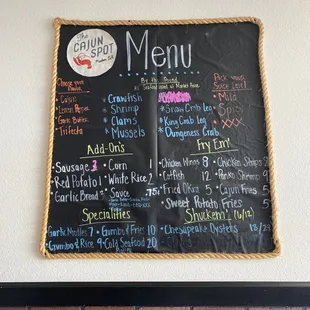 The
CAJUN
SPOT
Menu
By the Pound
Choose your
Pick your
Sauce Level
Cajun
Lemon Pepper
Garlic Butter
Trifecta
* Crawfish
* Shrimp
* Clams
* Mussels
* Snow Crab Leg
* King Crab Leg
* Dungeness Crab
* Mild
* Spicy
* XX
* XXX
Add-On's
Fry Em!
• Sausage 3 • Corn 1
• Red Potato 1 • White Rice 2
Garlic Bread • Sauce .75
• Chicken Wings 8 • Chicken Strips
• Catfish 12 • Panko Shrimp 9
• Fried Okra 5 • Cajun Fries 5
• Sweet Potato Fries 5
Specialities
Shuckem! (6/12)
Garlic Noodles 7 • Gumbo & Fries 10
Gumbo & Rice 9 • Cold Seafood 20
• Chesapeake Oysters 18/29